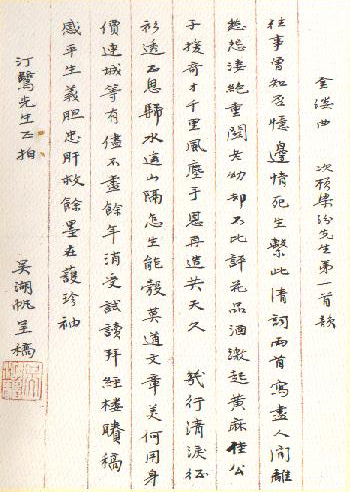 金縷曲 次顧梁汾先生第一首韻
往事曾知否憶邊情死生繫此情詞兩首寫盡人間離
愁怨淒絕重閱老幼却不比評花品酒激起黃麻佳公
子援奇才千里風塵手恩再造共天久 幾行清淚征
衫透不忍歸水遠山隔怎生能彀莫道文章美何用身
價連城等有儘不盡餘年消受試讀拜經樓賸稿
感平生義胆忠肝救餘墨在護珍袖
汀鷺先生正拍 吳湖帆呈稿